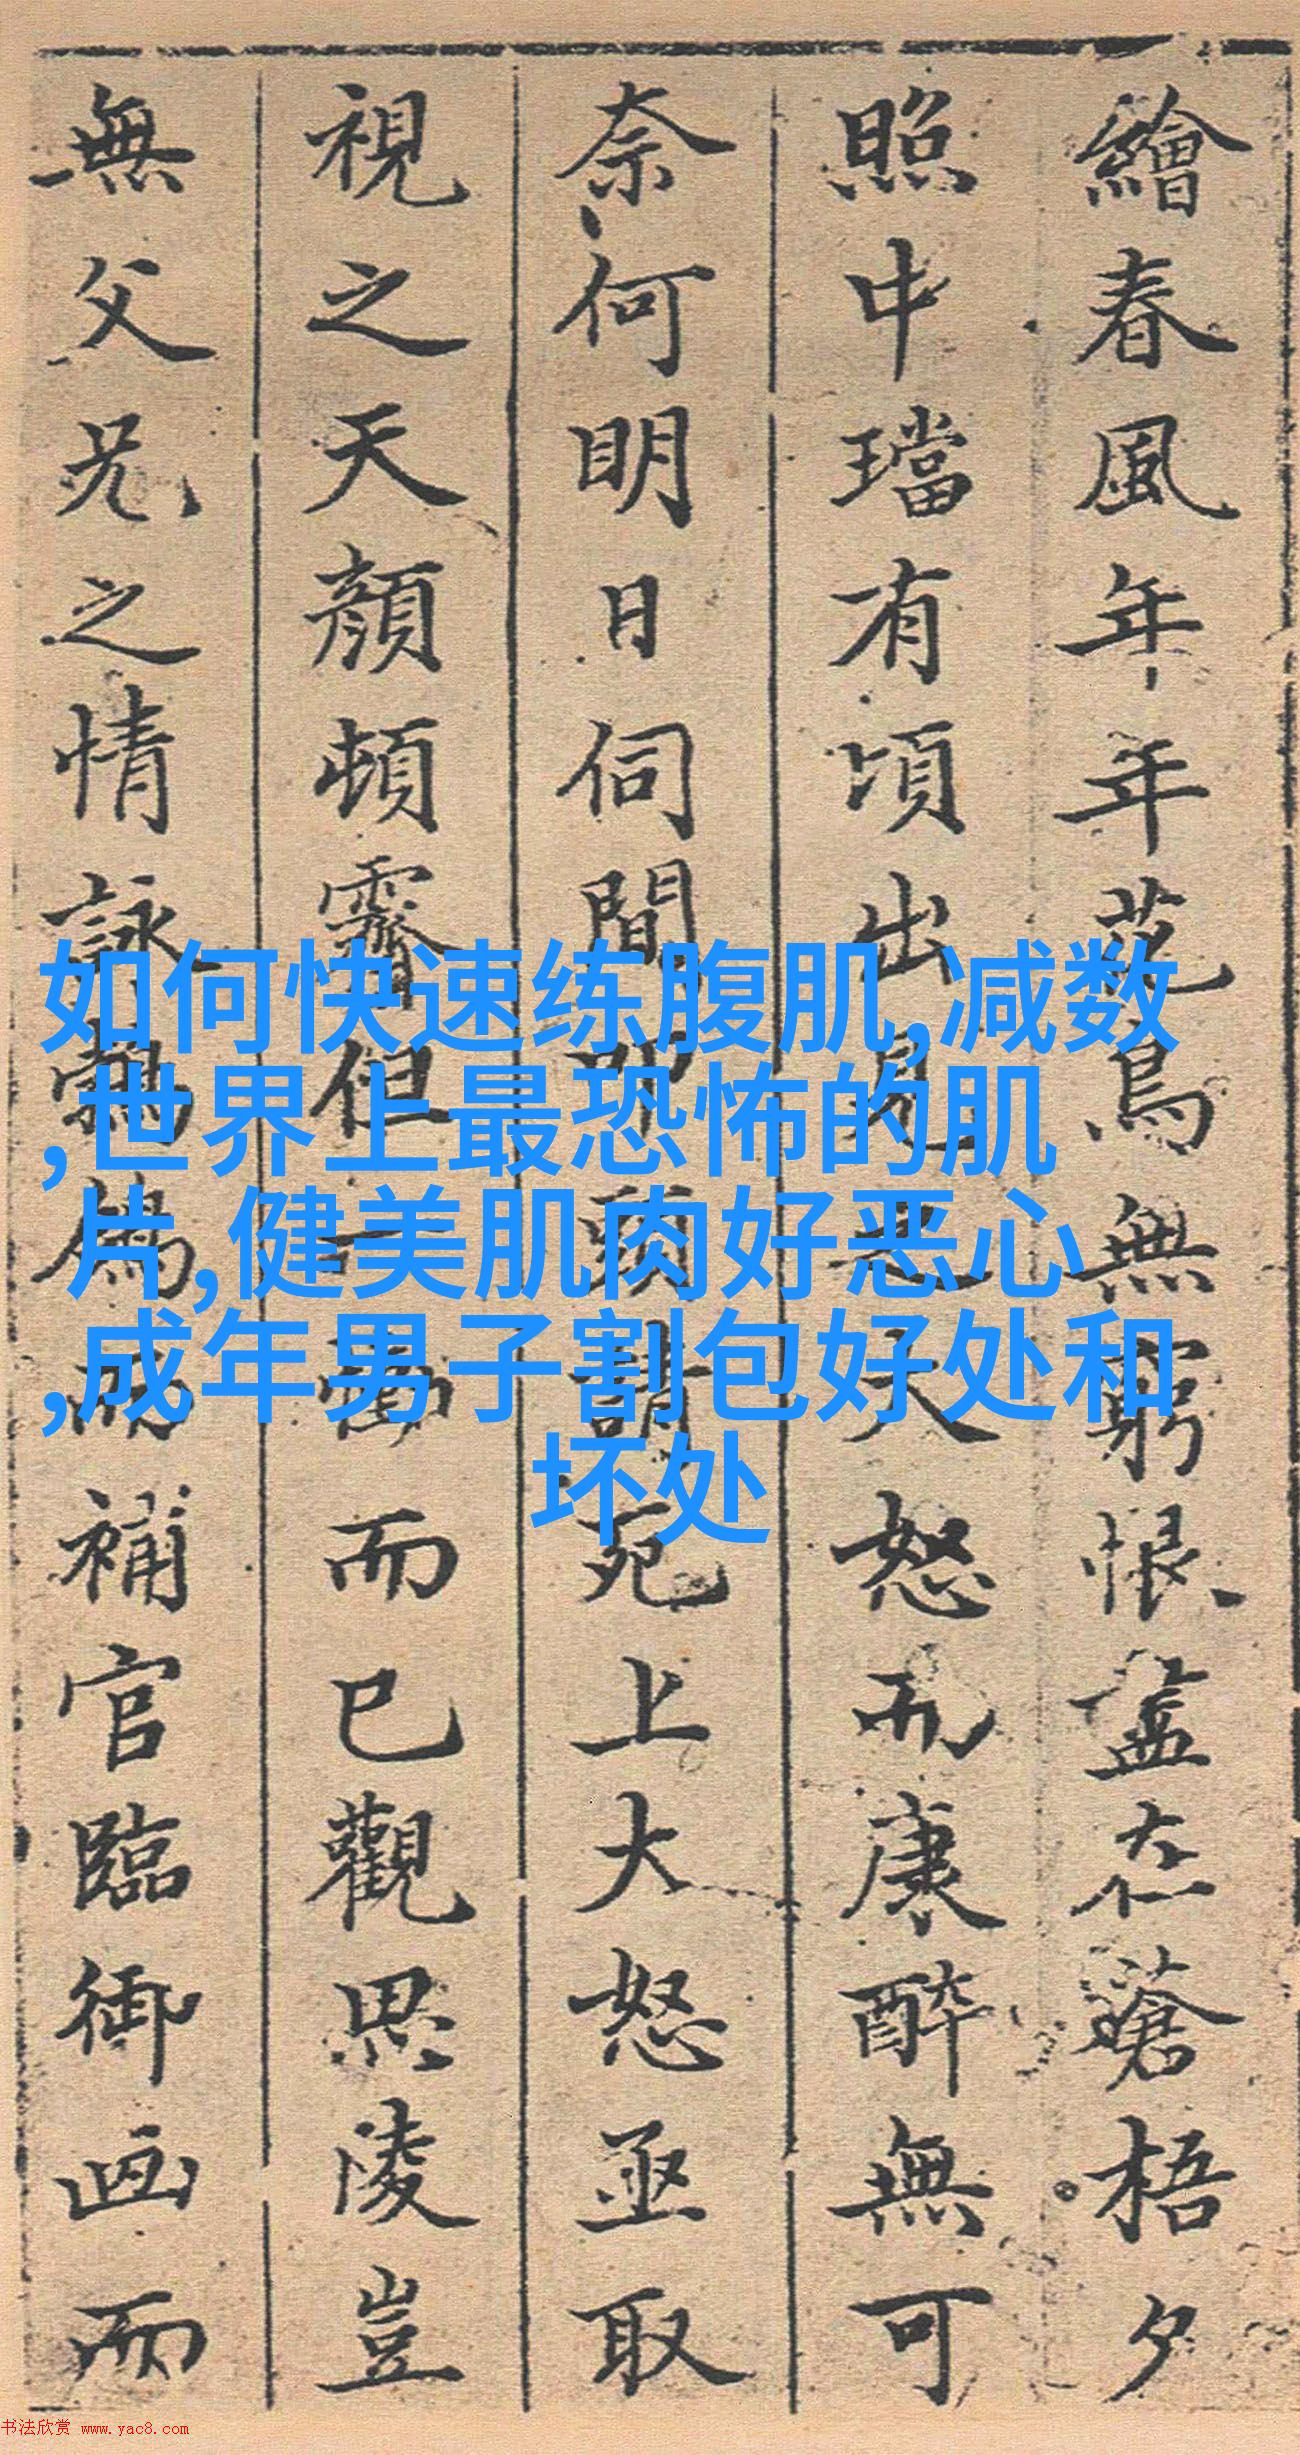 繪春風年年花鳥無窮恨盡在蒼梧夕
照中璫有頃出見之大怒而康醉無可
奈何明日伺間叩頭請死上大怒亟取
視之天顏頓霽但一慟而已觀思陵豈
無父兄之情詠鶺鴒而補官臨御画而
如何快速练腹肌,减数
,世界上最恐怖的肌
片,健美肌肉好恶心
,成年男子割包好处和
坏处
书法欣赏 www.yac8.com